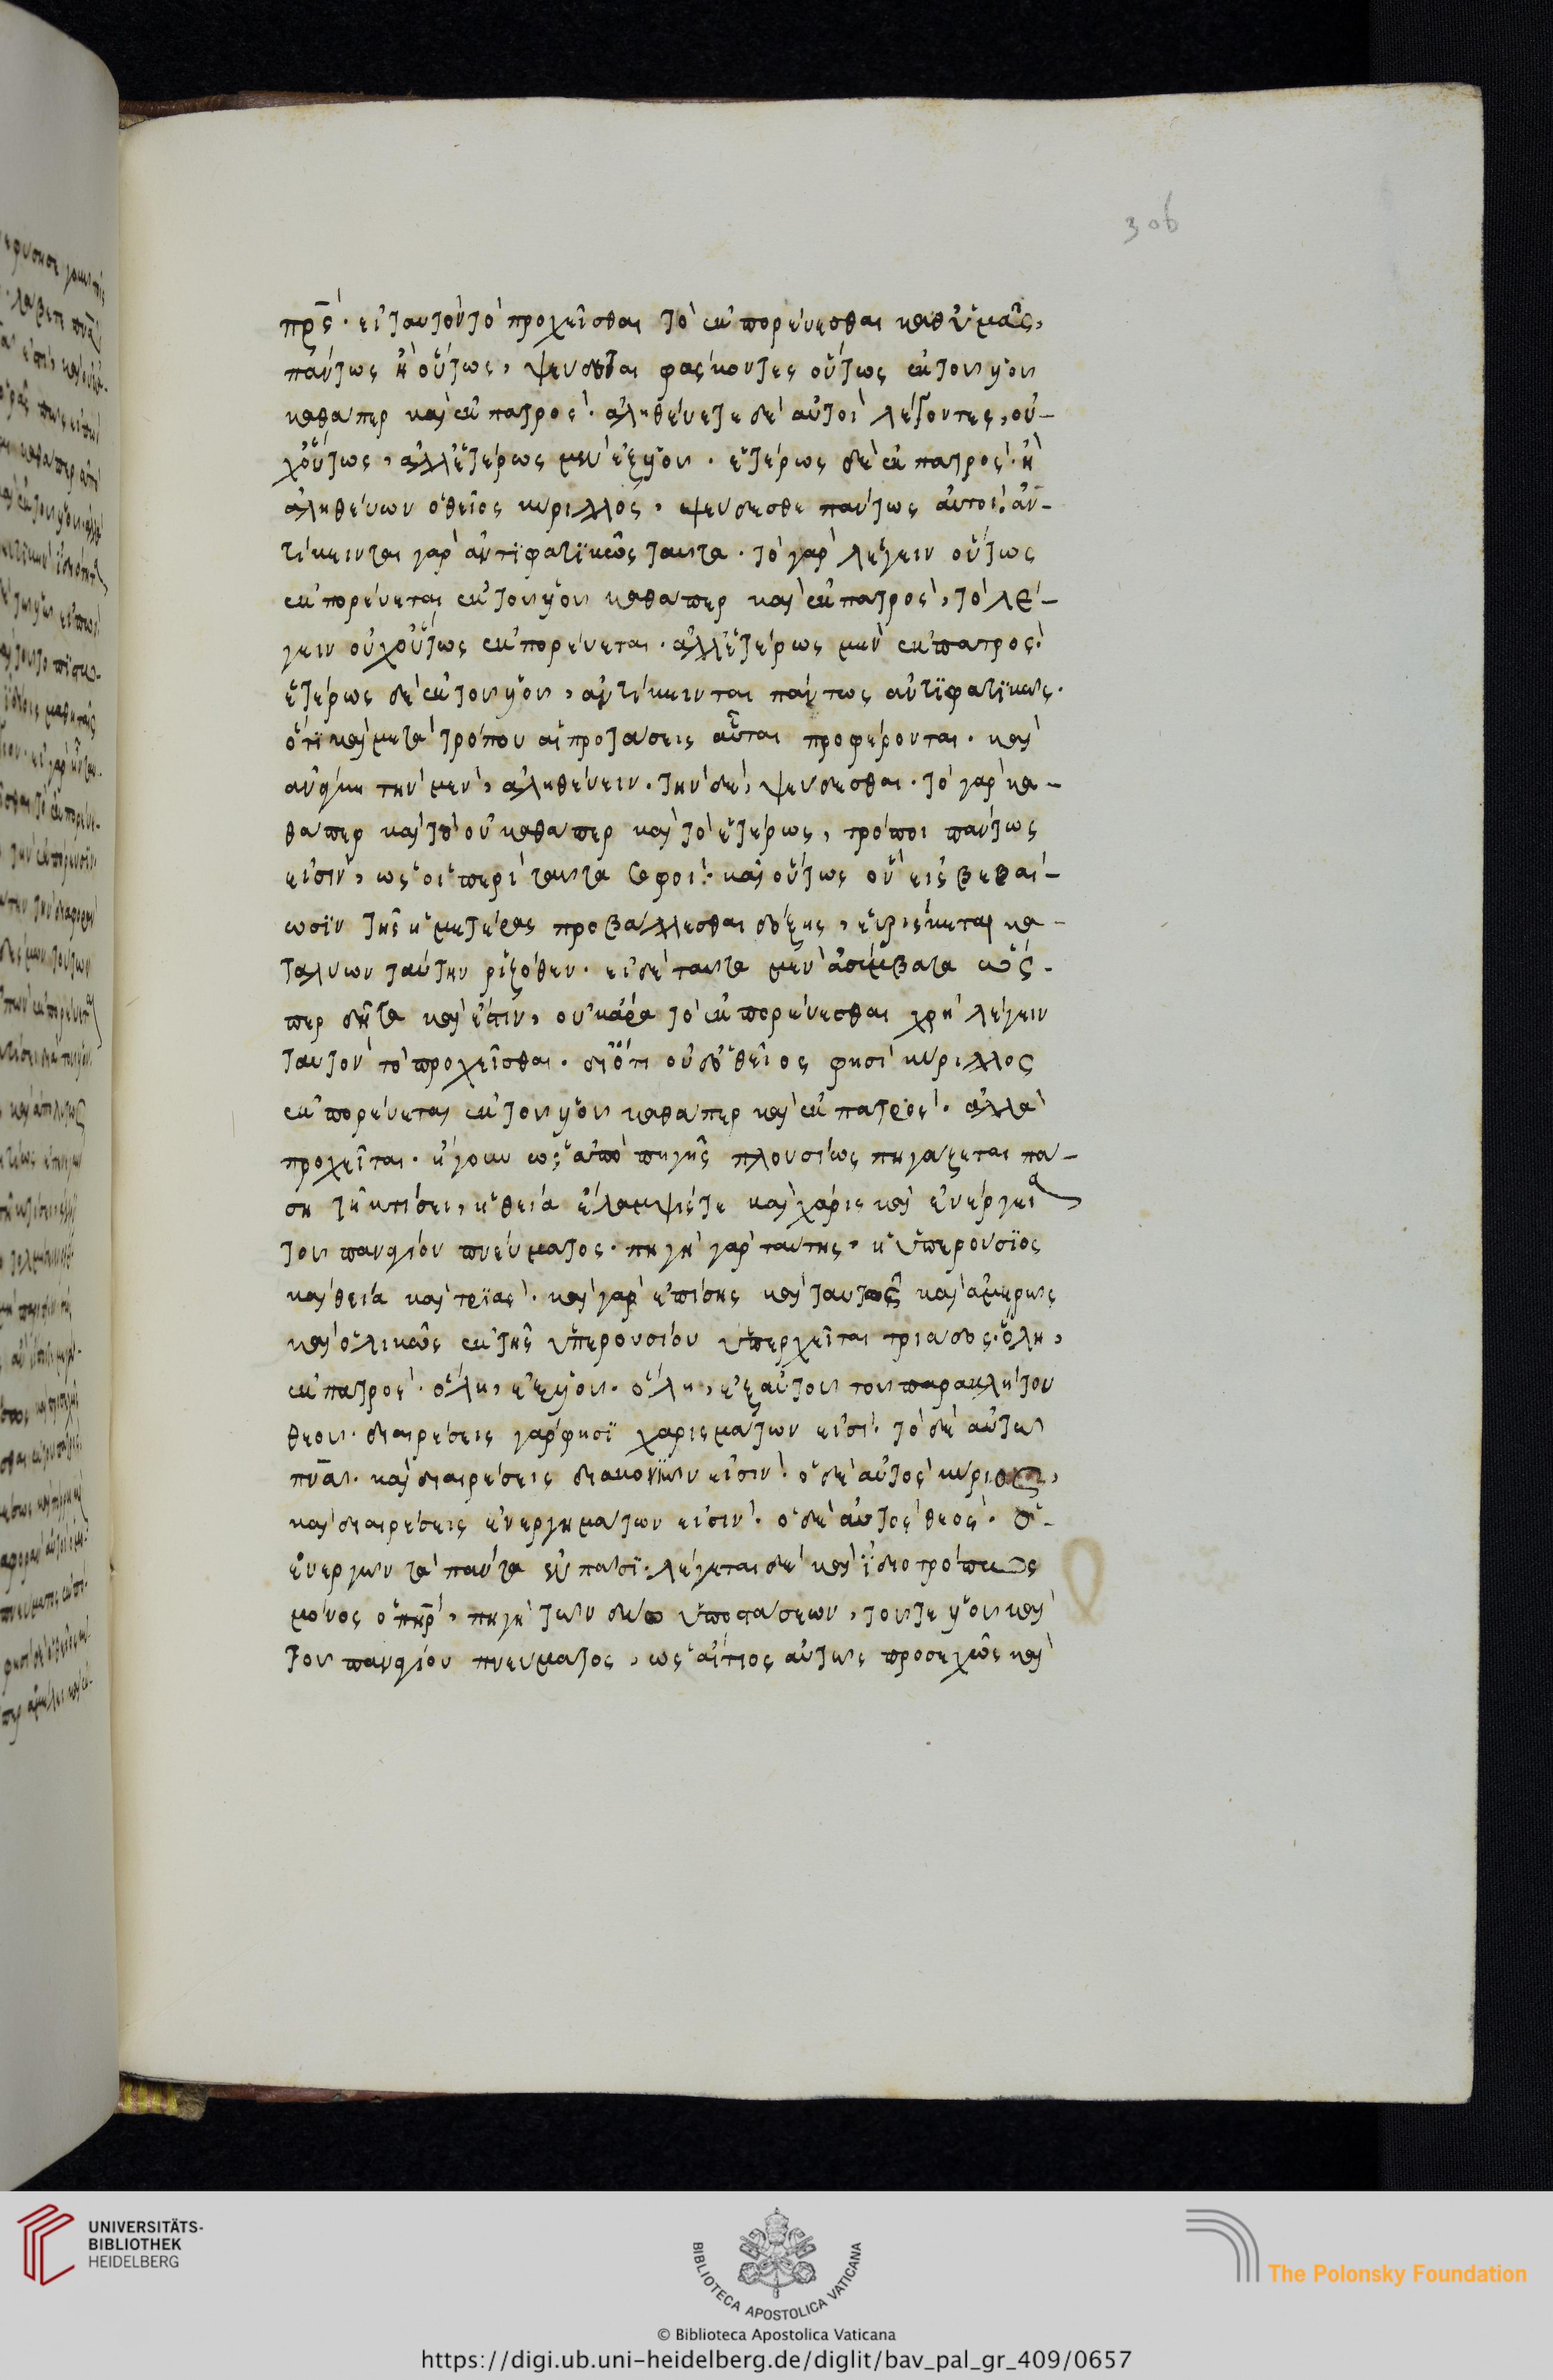 306
πρς· εἰ ταυτὸν τὸ προχεῖσθαι τὸ ἐκπορεύεσθαι καθ' ὑμᾶς,
πάντως ἢ οὕτως, ψεύδεσθαι φάσκοντες οὕτως ἐκ τοῦ υἱοῦ
καθάπερ καὶ ἐκ πατρός· ἀληθεύετε δὲ αὐτοὶ λέγοντες, οὐ-
χ οὕτως, ἀλλ' ἑτέρως μὲν ἐξ υἱοῦ· ἑτέρως δὲ ἐκ πατρός· ἢ
ἀληθεύων ὁ θεῖος κύριλλος, ψεύδεσθε πάντως αὐτοί· ἀν-
τίκεινται γὰρ ἀντιφατικῶς ταῦτα· τὸ γὰρ λέγειν οὕτως
ἐκπορεύεται ἐκ τοῦ υἱοῦ καθάπερ καὶ ἐκ πατρὸς, τὸ λέ-
γειν οὐχ οὕτως ἐκπορεύεται· ἀλλ' ἑτέρως μὲν ἐκ πατρός·
ἑτέρως δὲ ἐκ τοῦ υἱοῦ, ἀντίκεινται πάντως ἀντιφατικῶς·
ὅτι καὶ μετὰ τρόπου αἱ προτάσεις αὗται προφέρονται· καὶ
ἀνάγκη τὴν μὲν, ἀληθεύειν· τὴν δὲ, ψεύδεσθαι· τὸ γὰρ κα-
θάπερ καὶ τὸ οὐ καθάπερ καὶ τὸ ἑτέρως, τρόποι πάντως
εἰσὶν, ὡς οἱ περὶ ταῦτα σοφοί· καὶ οὕτως οὓς εἰς βεβαί-
ωσιν τῆς ἡμετέρας προβάλλεσθαι δόξης, εὑρίσκεται κα-
ταλύων ταύτην ῥιζόθεν· εἰ δὲ ταῦτα μὲν ἀσύμβατα ὥς-
περ δῆτα καὶ ἔστιν, οὐκ ἄρα τὸ ἐκπορεύεσθαι χρὴ λέγειν
ταυτὸν τὸ προχεῖσθαι· διότι οὐδ' ὁ θεῖος φησὶ κύριλλος
ἐκπορεύεται ἐκ τοῦ υἱοῦ καθάπερ καὶ ἐκ πατρός· ἀλλὰ
προχεῖται· ἤγουν ὡς ἀπὸ πηγῆς πλουσίως πηγάζεται πά-
ση τῇ κτίσει, ἡ θεία ἔλλαμψίς τε καὶ χάρις καὶ ἐνέργεια
τοῦ παναγίου πνεύματος· πηγὴ γὰρ ταύτης, ἡ ὑπερούσιος
καὶ θεία καὶ τριάς· καὶ γὰρ ἐπίσης καὶ ταυτῶς καὶ ἀμερῶς
καὶ ὁλικῶς ἐκ τῆς ὑπερουσίου ὑπερχεῖται τριάδος· ὅλη,
ἐκ πατρός· ὅλη, ἐξ υἱοῦ· ὅλη, ἐξ αὐτοῦ τοῦ παρακλήτου
θεοῦ· διαιρέσεις γὰρ φησὶ χαρισμάτων εἰσὶ· τὸ δὲ αὐτὸ
πνα· καὶ διαιρέσεις διακονιῶν εἰσίν· ὁ δὲ αὐτὸς κύριος,
καὶ διαιρέσεις ἐνεργημάτων εἰσίν· ὁ δὲ αὐτὸς θεός· ὁ
ἐνεργῶν τὰ πάντα ἐν πᾶσι· λέγεται δὲ καὶ ἰδιοτρόπως
μόνος ὁ πηρ, πηγὴ τῶν δύο ὑποστάσεων, τοῦ τε υἱοῦ καὶ
τοῦ παναγίου πνεύματος, ὡς αἴτιος αὐτῶν προσεχῶς καὶ
UNIVERSITÄTS-
BIBLIOTHEK
HEIDELBERG
BIBLIOTECA APOSTOLICA VATICANA
The Polonsky Foundation
© Biblioteca Apostolica Vaticana
https://digi.ub.uni-heidelberg.de/diglit/bav_pal_gr_409/0657